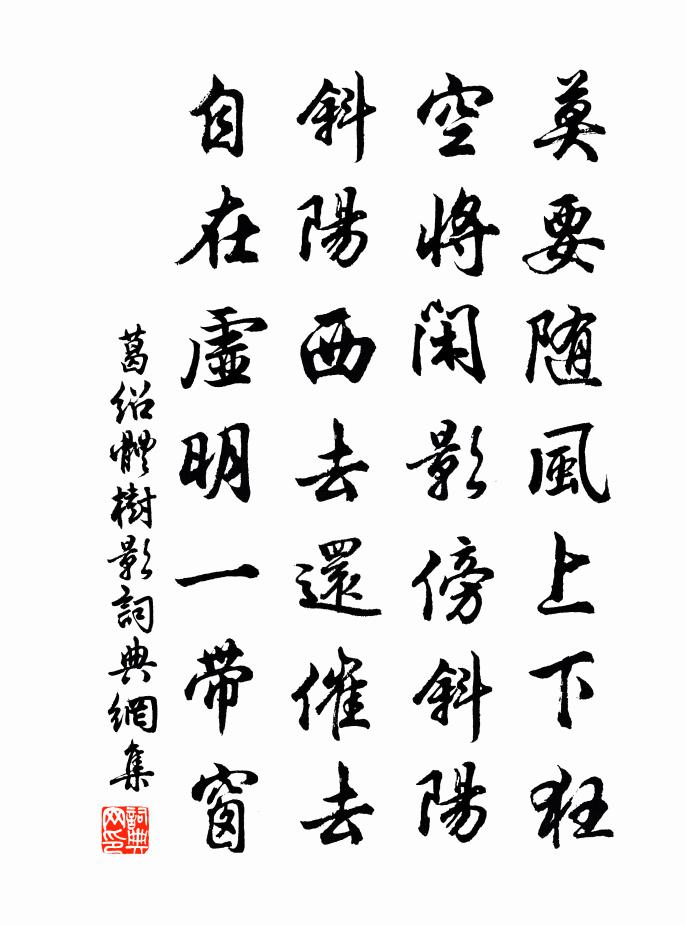 莫要随風上下狂
空將閑影傍斜陽
斜陽西去還催去
自在虛明一帶窗
葛紹體樹影詞典網集
詞典网印